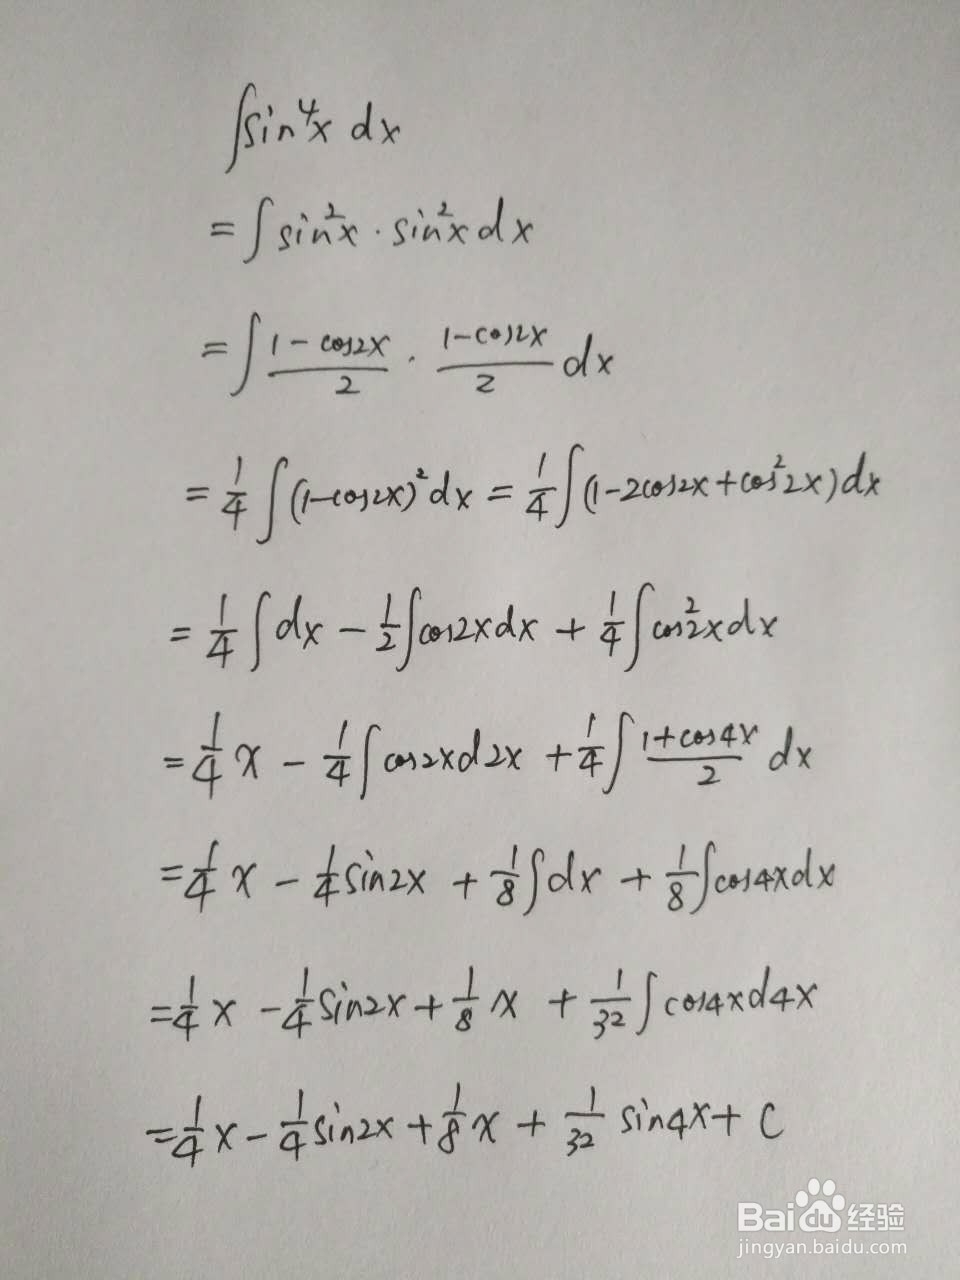 ∫sin⁴x dx
= ∫ sin²x · sin²x dx
= ∫ (1 - cos2x)/2 · (1-cos2x)/2 dx
= 1/4 ∫ (1-cos2x)² dx = 1/4 ∫ (1-2cos2x+cos²2x) dx
= 1/4 ∫ dx - 1/2 ∫ cos2x dx + 1/4 ∫ cos²2x dx
= 1/4 x - 1/4 ∫ cos2x d2x + 1/4 ∫ (1+cos4x)/2 dx
= 1/4 x - 1/4 sin2x + 1/8 ∫ dx + 1/8 ∫ cos4x dx
= 1/4 x - 1/4 sin2x + 1/8 x + 1/32 ∫ cos4x d4x
= 1/4 x - 1/4 sin2x + 1/8 x + 1/32 sin4x + C
Baidu经验
jingyan.baidu.com